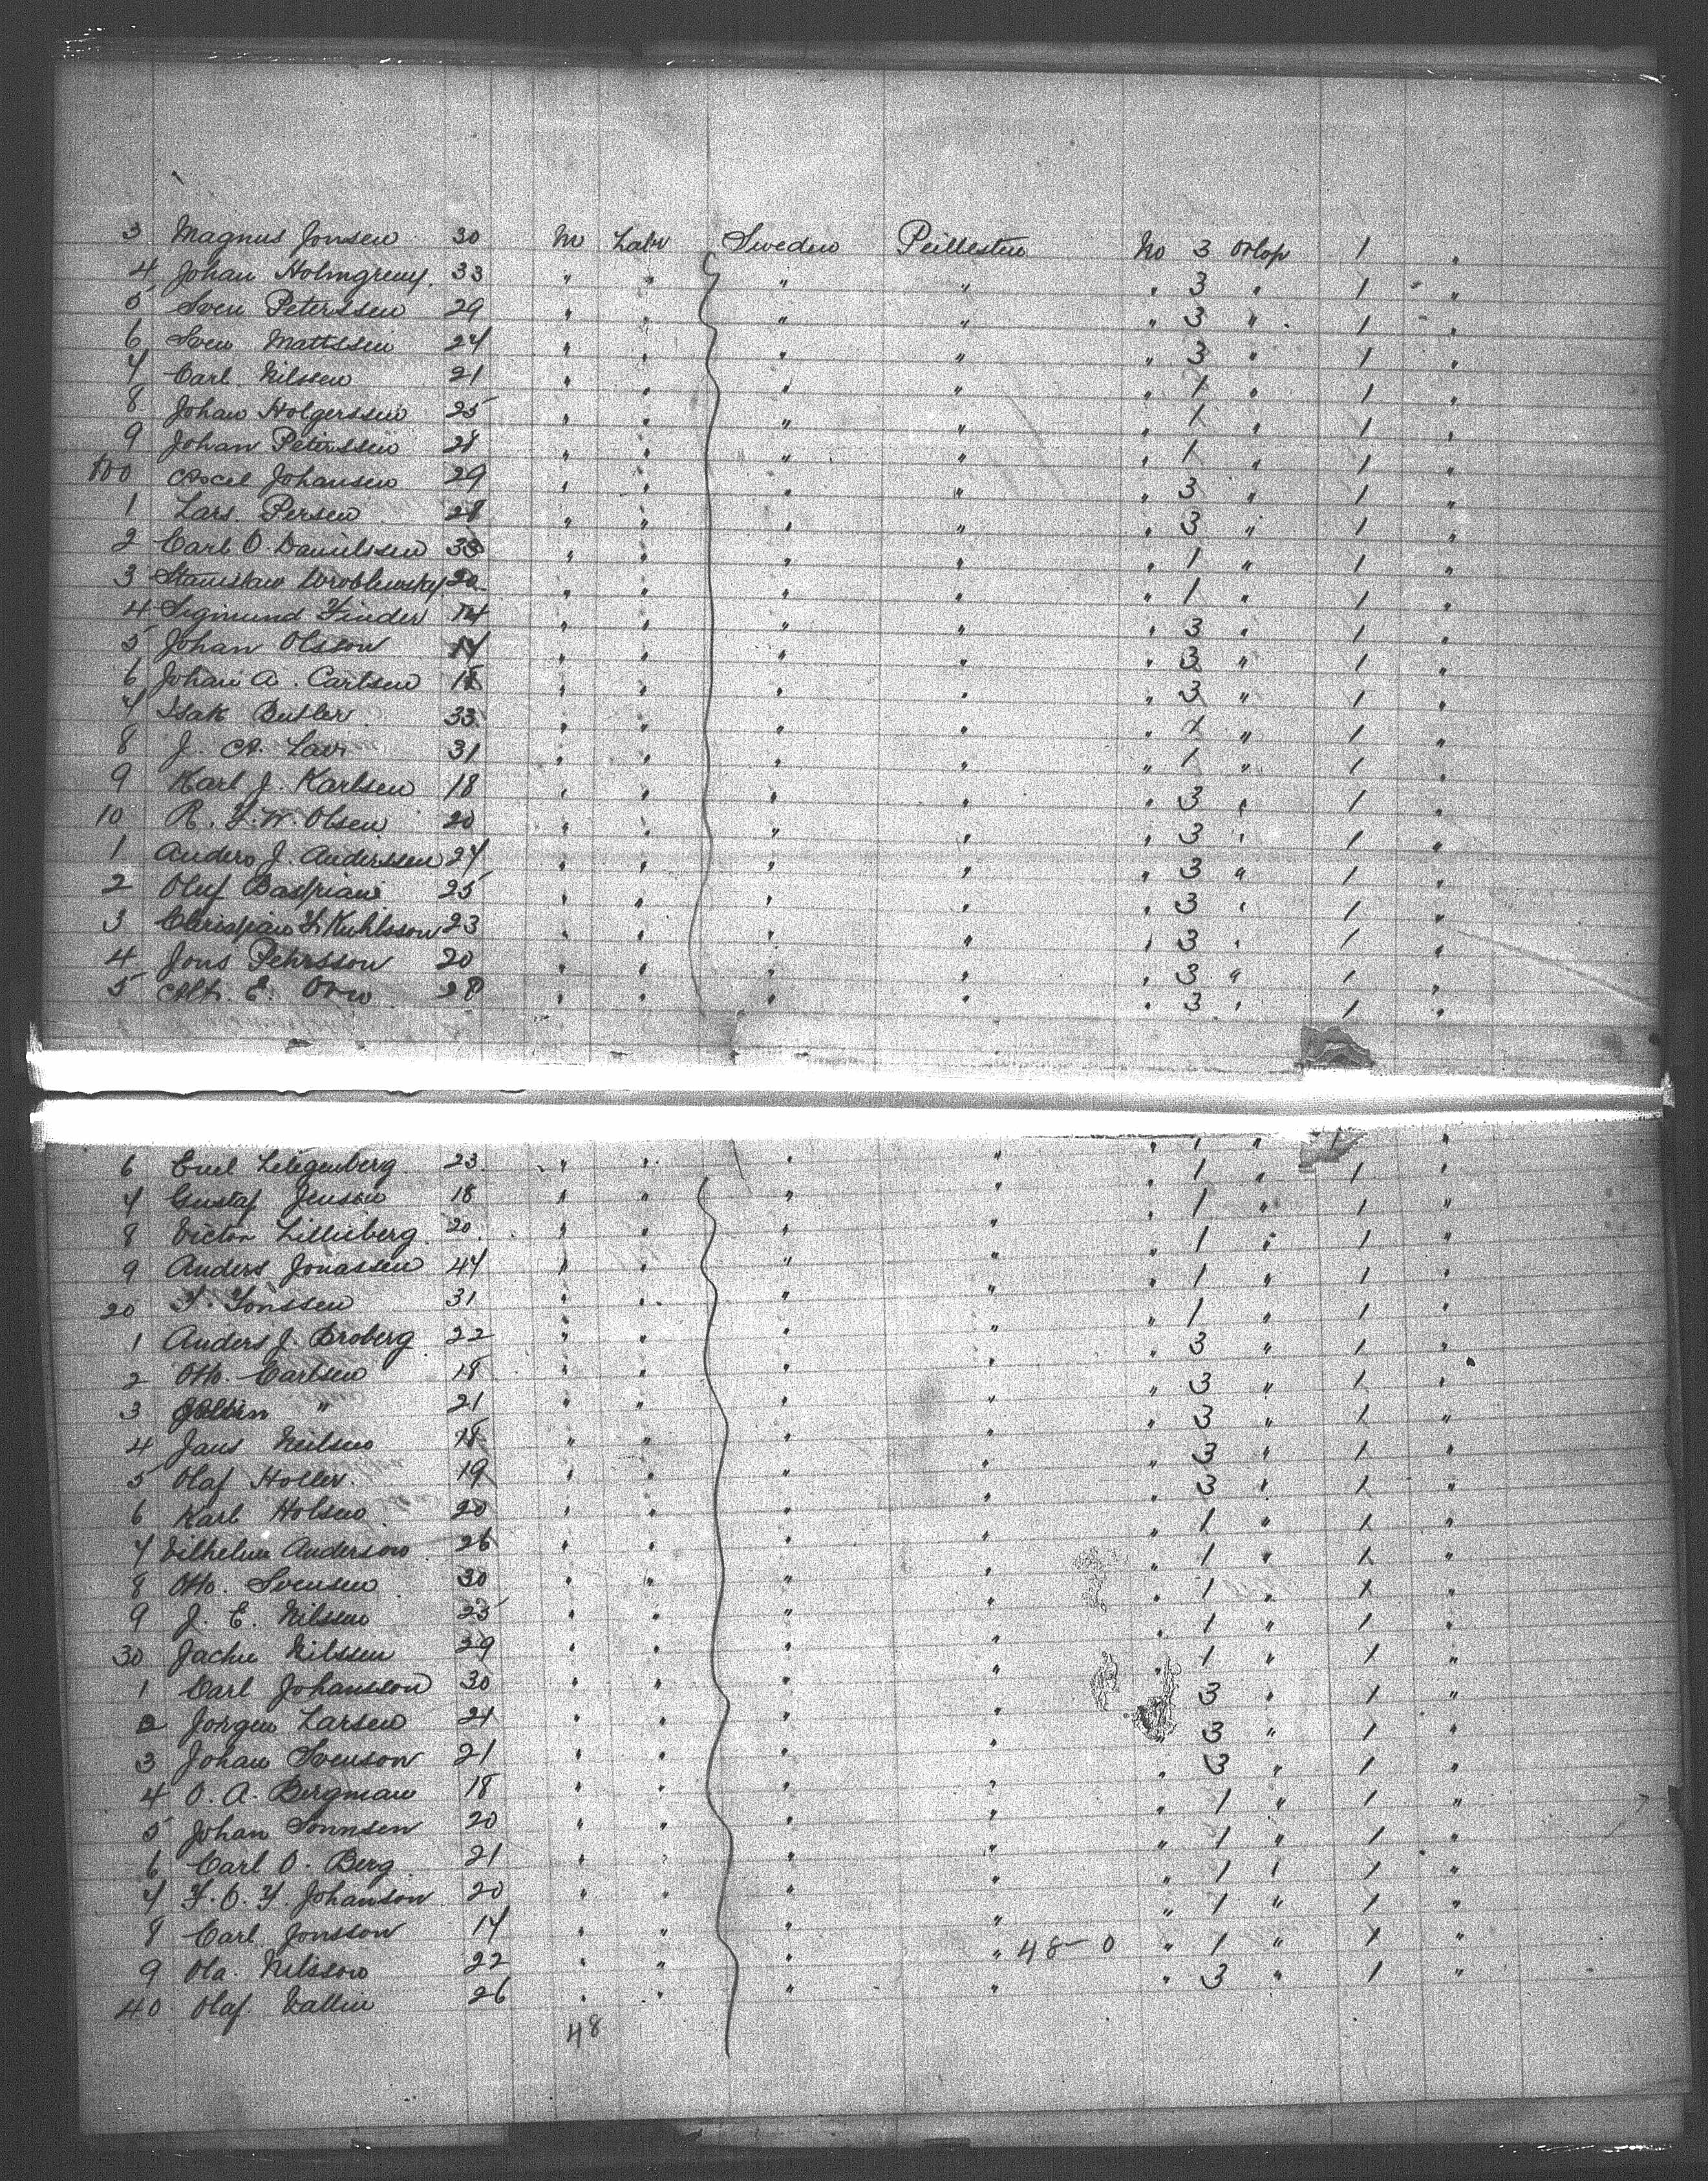 3 Magnus Jonsen 30 m Labr Sweden No 3 Orlop 1 "
4 Johan Holmgreny 33 " " " " " 3 " 1 "
5 Sven Peterssen 29 " " " " " 3 " 1 "
6 Sven Mattssen 24 " " " " " 3 " 1 "
7 Carl Nilssen 21 " " " " " 1 " 1 "
8 Johan Holgerssen 25 " " " " " 1 " 1 "
9 Johan Peterssen 28 " " " " " 1 " 1 "
100 Axcel Johansen 29 " " " " " 3 " 1 "
1 Lars Persen 28 " " " " " 3 " 1 "
2 Carl O. Danielssen 33 " " " " " 1 " 1 "
3 Stanislaw Wroblewsky 20 " " " " " 1 " 1 "
4 Sigmund Finder " " " " " 3 " 1 "
5 Johan Olsson 17 " " " " " 3 " 1 "
6 Johan A. Carlsen 18 " " " " " 3 " 1 "
7 Isak Butler 33 " " " " " 1 " 1 "
8 J. A. Lavr 31 " " " " " 1 " 1 "
9 Karl J. Karlsen 18 " " " " " 3 " 1 "
10 R. F. W. Olsen 20 " " " " " 3 " 1 "
1 Anders J. Anderssen 27 " " " " " 3 " 1 "
2 Oluf Baspiani 25 " " " " " 3 " 1 "
3 F. Kuhlsson 23 " " " " " 3 " 1 "
4 Jons Pehrsson 20 " " " " " 3 " 1 "
5 E. 28 " " " " " 3 " 1 "
6 Emel Lelegenberg 23 " " " " " 1 " 1 "
7 Gustaf Jenson 18 " " " " " 1 " 1 "
8 Victor Lillieberg 20 " " " " " 1 " 1 "
9 Anders Jonassen 47 " " " " " 1 " 1 "
20 F. Jonssen 31 " " " " " 1 " 1 "
1 Anders J. Broberg 22 " " " " " 1 " 1 "
2 Otto Carlsen 18 " " " " " 3 " 1 "
3 " 21 " " " " " 3 " 1 "
4 Jans Neilsen 18 " " " " " 3 " 1 "
5 Olaf Holler 19 " " " " " 3 " 1 "
6 Karl Holsen 20 " " " " " 3 " 1 "
7 Vilhelm Anderson 26 " " " " " 1 " 1 "
8 Otto Svensen 30 " " " " " 1 " 1 "
9 J. E. Nilssen 25 " " " " " 1 " 1 "
30 Jachu Nilssen 39 " " " " " 1 " 1 "
1 Carl Johansson 30 " " " " " 1 " 1 "
2 Jorgen Larsen 21 " " " " " 3 " 1 "
3 Johan Svenson 21 " " " " " 3 " 1 "
4 O. A. Bergman 18 " " " " " 3 " 1 "
5 Johan Sonnsen 20 " " " " " 1 " 1 "
6 Carl O. Berg 21 " " " " " 1 " 1 "
7 F. O. F. Johanson 20 " " " " " 1 " 1 "
8 Carl Jonsson 17 " " " " " 1 " 1 "
9 Ola Nilsson 22 " " " " 48-0 " 1 " 1 "
40 Olaf Wallin 26 " " " " " 3 " 1 "
48